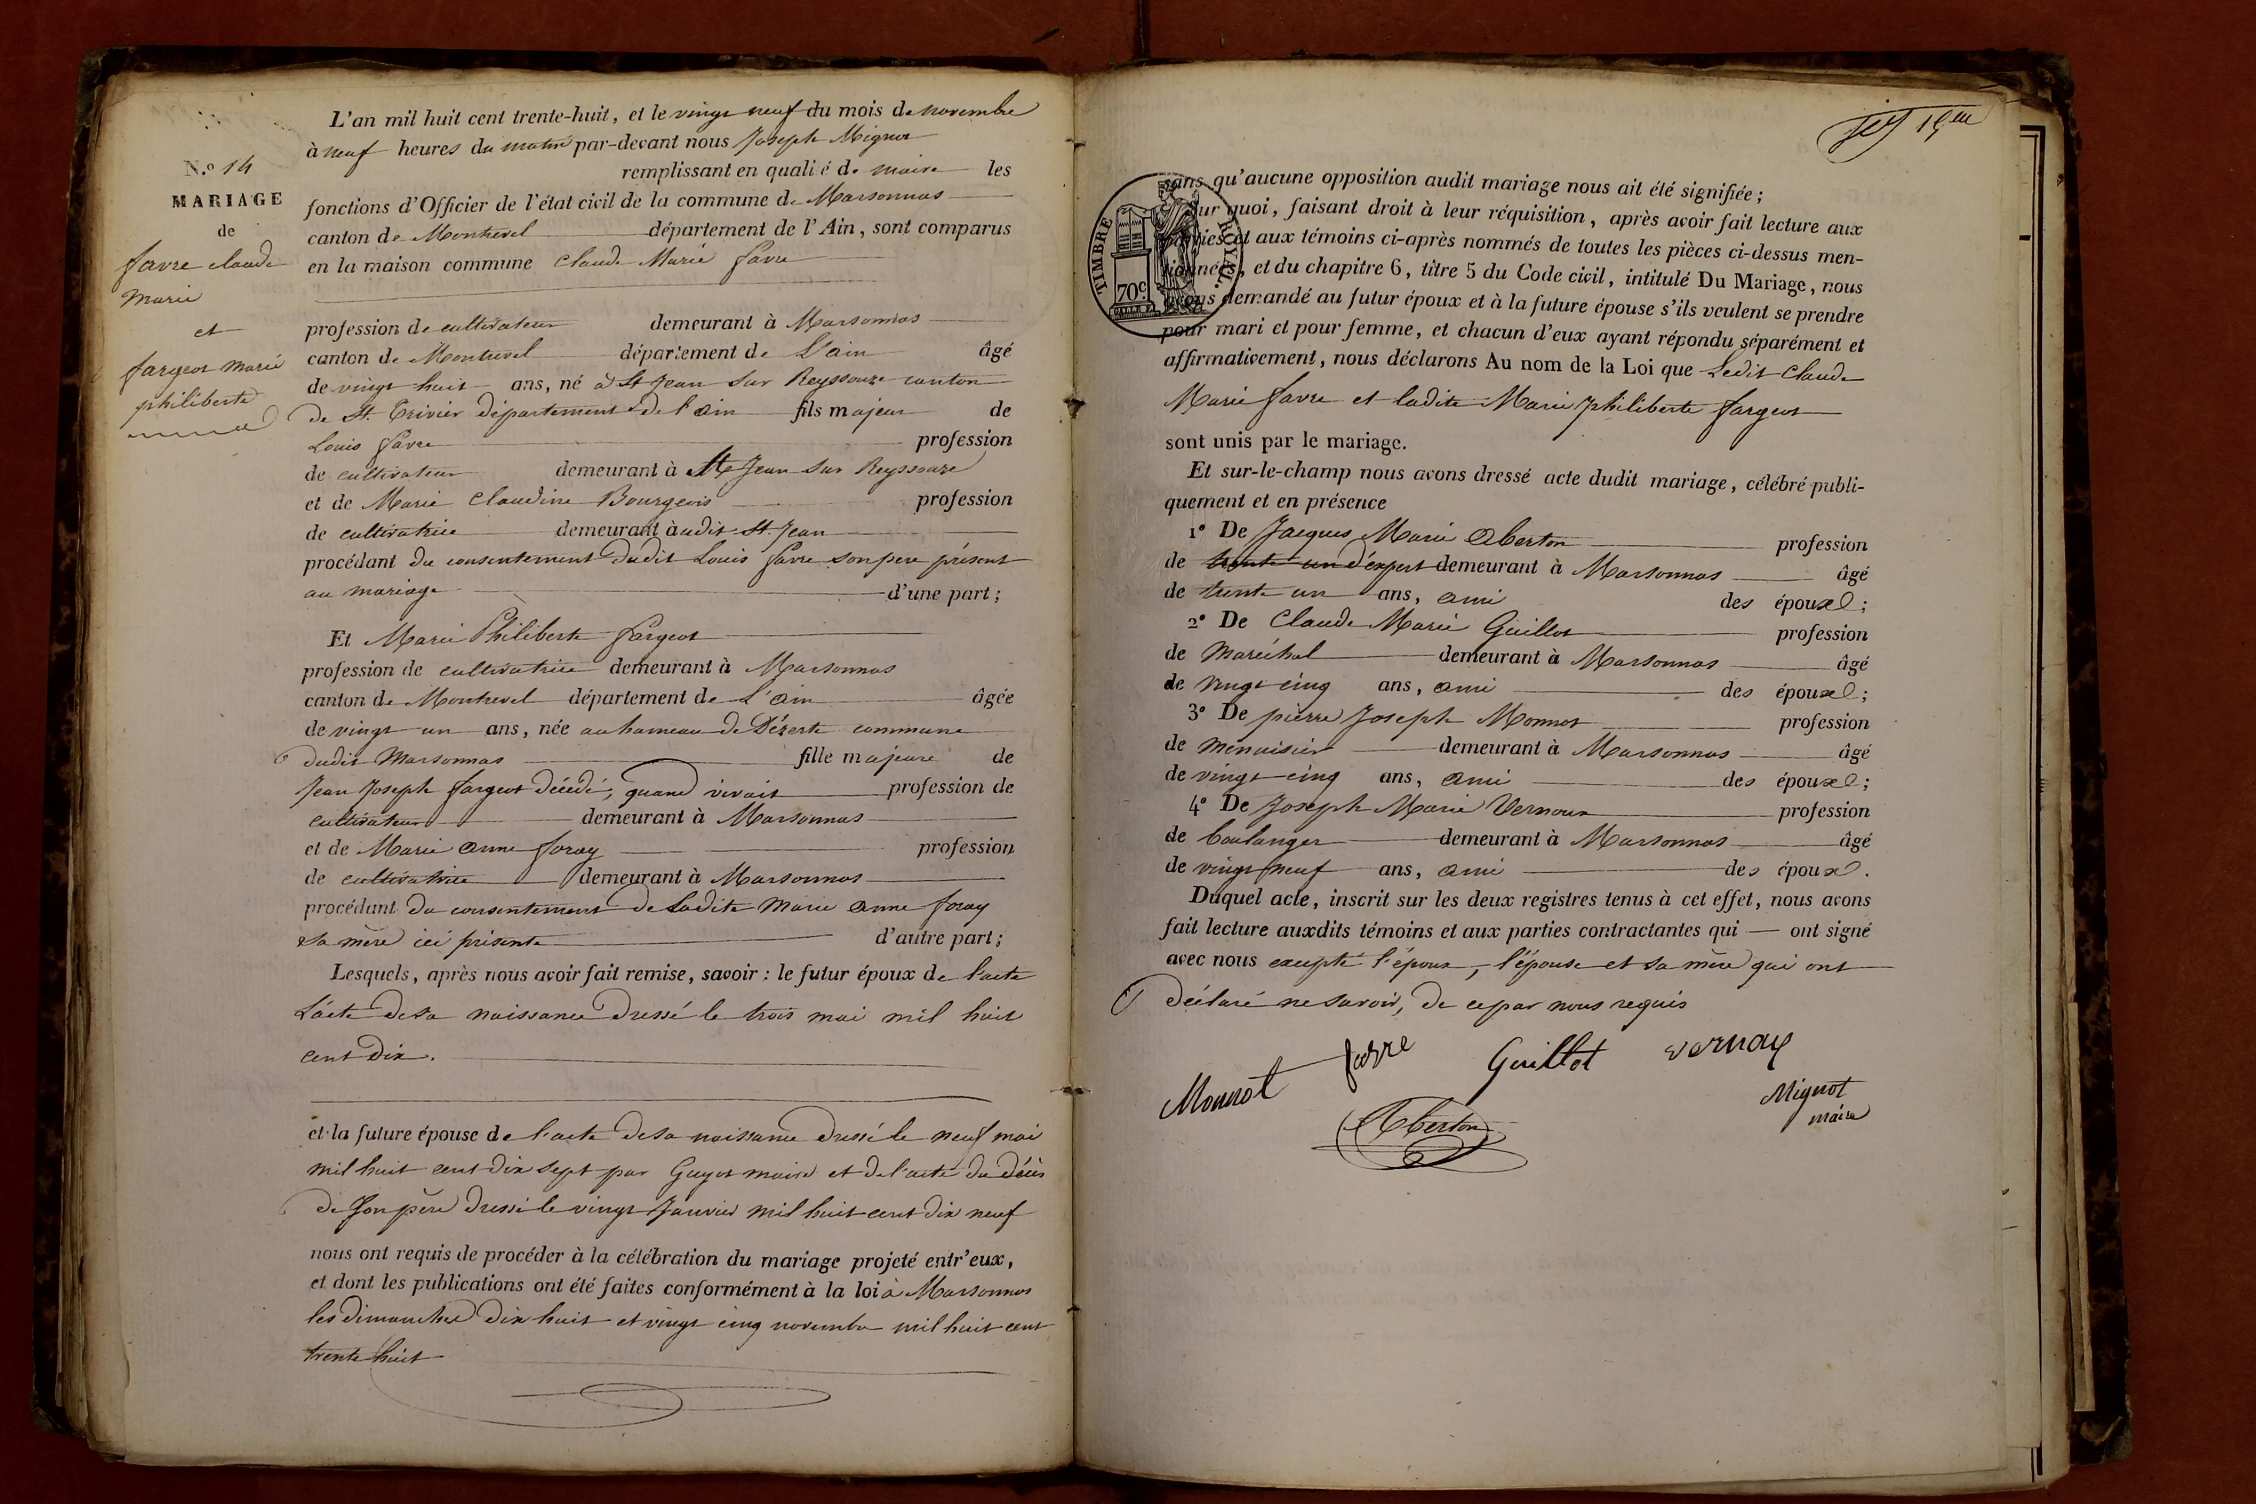 N.º 14
MARIAGE
de
favre claude
marie
et
fargeot marie
philiberte
L'an mil huit cent trente-huit, et le vingt neuf du mois de novembre
à neuf heures du matin par-devant nous Joseph Mignot
remplissant en qualité de maire les
fonctions d'Officier de l'état civil de la commune de Marsonnas
canton de Montrevel département de l'Ain, sont comparus
en la maison commune Claude Marie favre
profession de cultivateur demeurant à Marsonnas
canton de Montrevel département de L'ain âgé
de vingt huit ans, né à St Jean sur Reyssouze canton
de St. Trivier département de l'ain fils majeur de
Louis favre profession
de cultivateur demeurant à St Jean sur Reyssouze
et de Marie Claudine Bourgeois profession
de cultivatrice demeurant à audit St. Jean
procédant du consentement dudit Louis favre son pere présent
au mariage d'une part;
Et Marie Philiberte fargeot
profession de cultivatrice demeurant à Marsonnas
canton de Montrevel département de L'ain âgée
de vingt un ans, née au hameau de Dézerte commune
dudit Marsonnas fille majeure de
Jean Joseph fargeot décédé, quand vivait profession de
cultivateur demeurant à Marsonnas
et de Marie anne foray profession
de cultivatrice demeurant à Marsonnas
procédant du consentement de Ladite Marie anne foray
sa mère ici présente d'autre part;
Lesquels, après nous avoir fait remise, savoir : le futur époux de l'acte
L'acte de sa naissance dressé le trois mai mil huit
cent dix.
et la future épouse de l'acte de sa naissance dressé le neuf mai
mil huit cent dix sept par Guyot maire et de l'acte du décès
de son père dressé le vingt Janvier mil huit cent dix neuf
nous ont requis de procéder à la célébration du mariage projeté entr'eux,
et dont les publications ont été faites conformément à la loi à Marsonnas
les dimanches dix huit et vingt cinq novembre mil huit cent
trente huit
TIMBRE ROYAL.
70c
sans qu'aucune opposition audit mariage nous ait été signifiée;
Sur quoi, faisant droit à leur réquisition, après avoir fait lecture aux
parties et aux témoins ci-après nommés de toutes les pièces ci-dessus men-
tionnées, et du chapitre 6, titre 5 du Code civil, intitulé Du Mariage, nous
avons demandé au futur époux et à la future épouse s'ils veulent se prendre
pour mari et pour femme, et chacun d'eux ayant répondu séparément et
affirmativement, nous déclarons Au nom de la Loi que Ledit Claude
Marie favre et ladite Marie philiberte fargeot
sont unis par le mariage.
Et sur-le-champ nous avons dressé acte dudit mariage, célébré publi-
quement et en présence
1º De Jacques Marie Aberton profession
de trente un d'expert demeurant à Marsonnas âgé
de trente un ans, ami des époux;
2º De Claude Marie Guillot profession
de maréchal demeurant à Marsonnas âgé
de vingt cinq ans, ami des époux;
3º De pierre Joseph Monnot profession
de menuisier demeurant à Marsonnas âgé
de vingt cinq ans, ami des époux;
4º De Joseph Marie Vernoux profession
de boulanger demeurant à Marsonnas âgé
de vingt neuf ans, ami des époux.
Duquel acte, inscrit sur les deux registres tenus à cet effet, nous avons
fait lecture auxdits témoins et aux parties contractantes qui ont signé
avec nous excepté l'époux, l'épouse et sa mère qui ont
déclaré ne savoir, de ce par nous requis
Monnot favre Guillot vernoux
Aberton
Mignot
maire